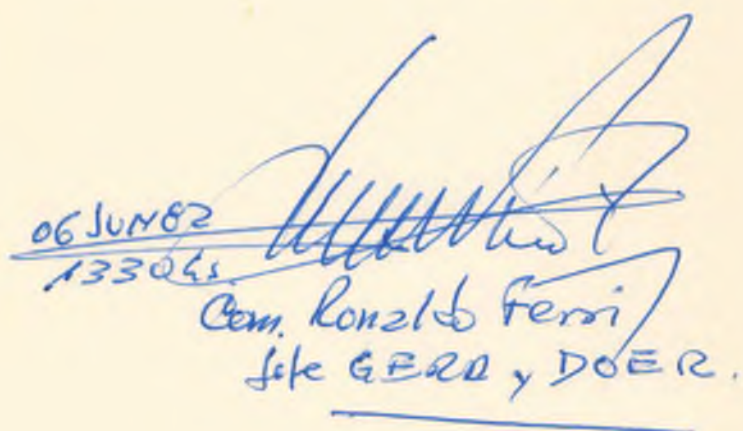 06 JUN 82
1330 Hs.
Com. Ronaldo Ferri
Jefe GERD y DOER.